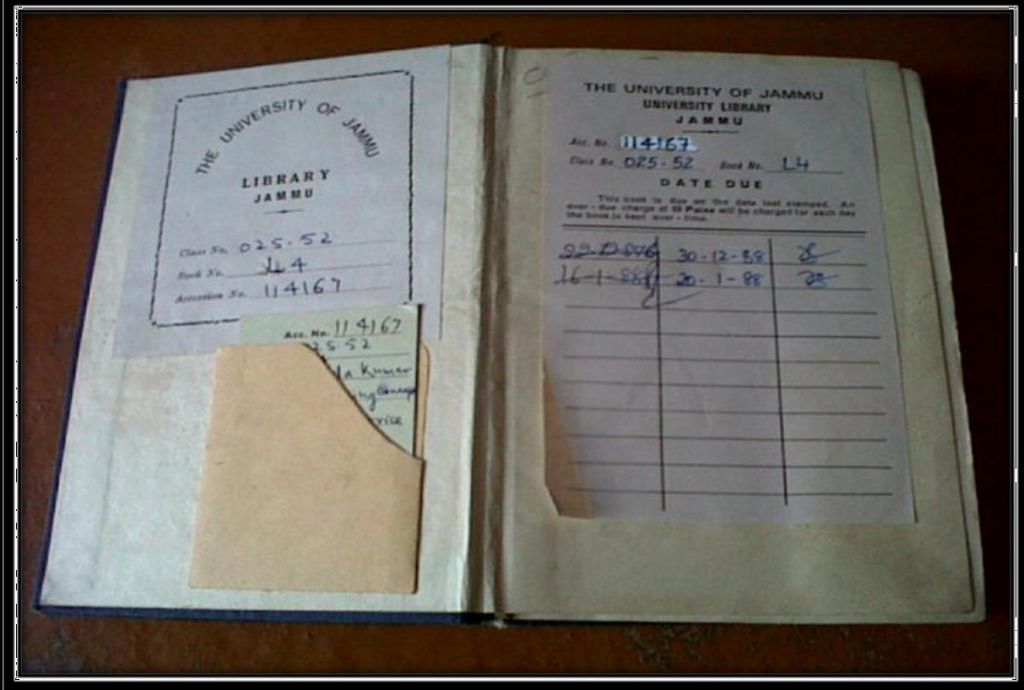 THE UNIVERSITY OF JAMMU
LIBRARY
JAMMU
Class No. 025.52
Book No. L4
Accession No. 114167
Acc. No. 114167
25.52
la Kumar
THE UNIVERSITY OF JAMMU
UNIVERSITY LIBRARY
JAMMU
Acc. No. 114167
Class No. 025.52 Book No. L4
DATE DUE
This book is due on the date last stamped. An
over-due charge of 10 Paise will be charged for each day
the book is kept over-time.
30-12-88
16-1-88 20-1-88